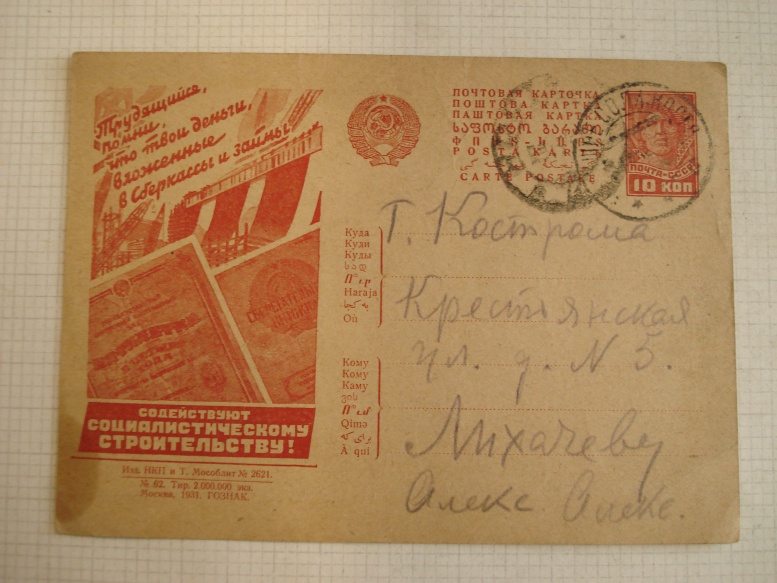 Трудящийся,
помни,
что твои деньги,
вложенные
в Сберкассы и займы
СОДЕЙСТВУЮТ
СОЦИАЛИСТИЧЕСКОМУ
СТРОИТЕЛЬСТВУ!
Изд. НКП и Т. Мособлит № 2621.
№ 62. Тир. 2.000.000 экз.
Москва. 1931. ГОЗНАК.
ПОЧТОВАЯ КАРТОЧКА
ПОШТОВА КАРТКА
ПАШТОВАЯ КАРТКА
POSTA
CARTE POSTALE
ПОЧТА-СССР
10 КОП
Куда
Куди
Куды
Haraja
Où
Г. Кострома
Крестьянская
ул. д. N 5.
Кому
Кому
Каму
ვის
Qimə
À qui
Лихачеву
Алекс Алекс.